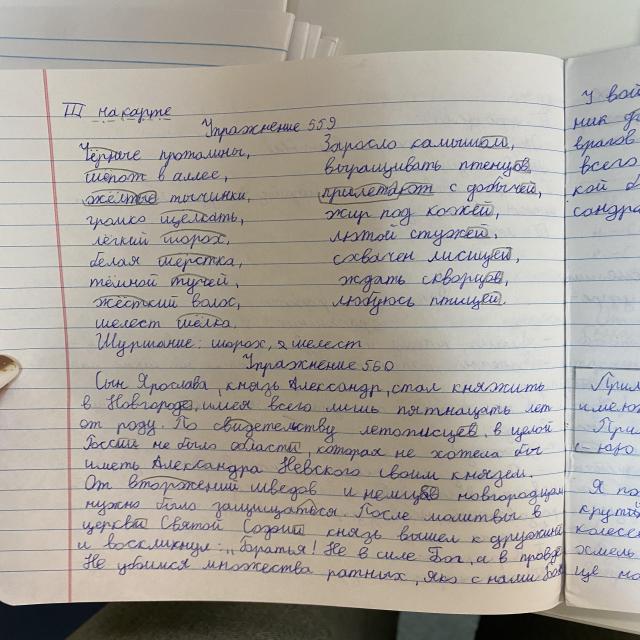 III на карте
Упражнение 559
Чёрные проталины,
шёпот в аллее,
жёлтые тычинки,
громко щёлкать,
лёгкий шорох,
белая шёрстка,
тёмной тучей,
жёсткий волос,
шелест шёлка.
Заросло камышом,
выращивать птенцов,
прилетают с добычей,
жир под кожей,
лютой стужей,
схвачен лисицей,
ждать скворцов,
любуюсь птицей.
Шуршание: шорох, шелест
Упражнение 560
Сын Ярослава, князь Александр, стал княжить
в Новгороде, имея всего лишь пятнацать лет
от роду. По свидетельству летописцев, в целой
России не было области, которая не хотела бы
иметь Александра Невского своим князем.
От вторжений шведов и немцев новгородцам
нужно было защищаться. После молитвы в
церкви Святой Софии князь вышел к дружине
и воскликнул: „Братья! Не в силе Бог, а в правде
Не убоимся множества ратных, яко с нами Бог
У вой
ник
врагов
всего
кой
сандра
Прил
имею
При
-юю
Я по
круты
колесе
хмель
ще на